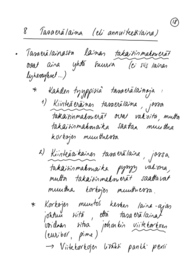 18
8 Tasaerälaina (eli annuiteettilaina)
• Tasaerälainassa lainan takaisinmaksuerät
ovat aina yhtä suuria (ei siis lainan
lyhennykset...)
* Kahden tyyppisiä tasaerälainoja:
1) Kiinteäeräinen tasaerälaina, jossa
takaisinmaksuerät ovat vakioita, mutta
takaisinmaksuaika saattaa muuttua
korkojen muuttuessa.
2) Kiinteäaikainen tasaerälaina, jossa
takaisinmaksuaika pysyy vakiona,
mutta takaisinmaksuerät saattavat
muuttua korkojen muuttuessa.
* Korkojen muutos kesken laina-ajan
johtuu siitä, että tasaerälainat
sidotaan usein johonkin viitekorkoon
(euribor, prime)
→ Viitekorkojen lisäksi pankki perii